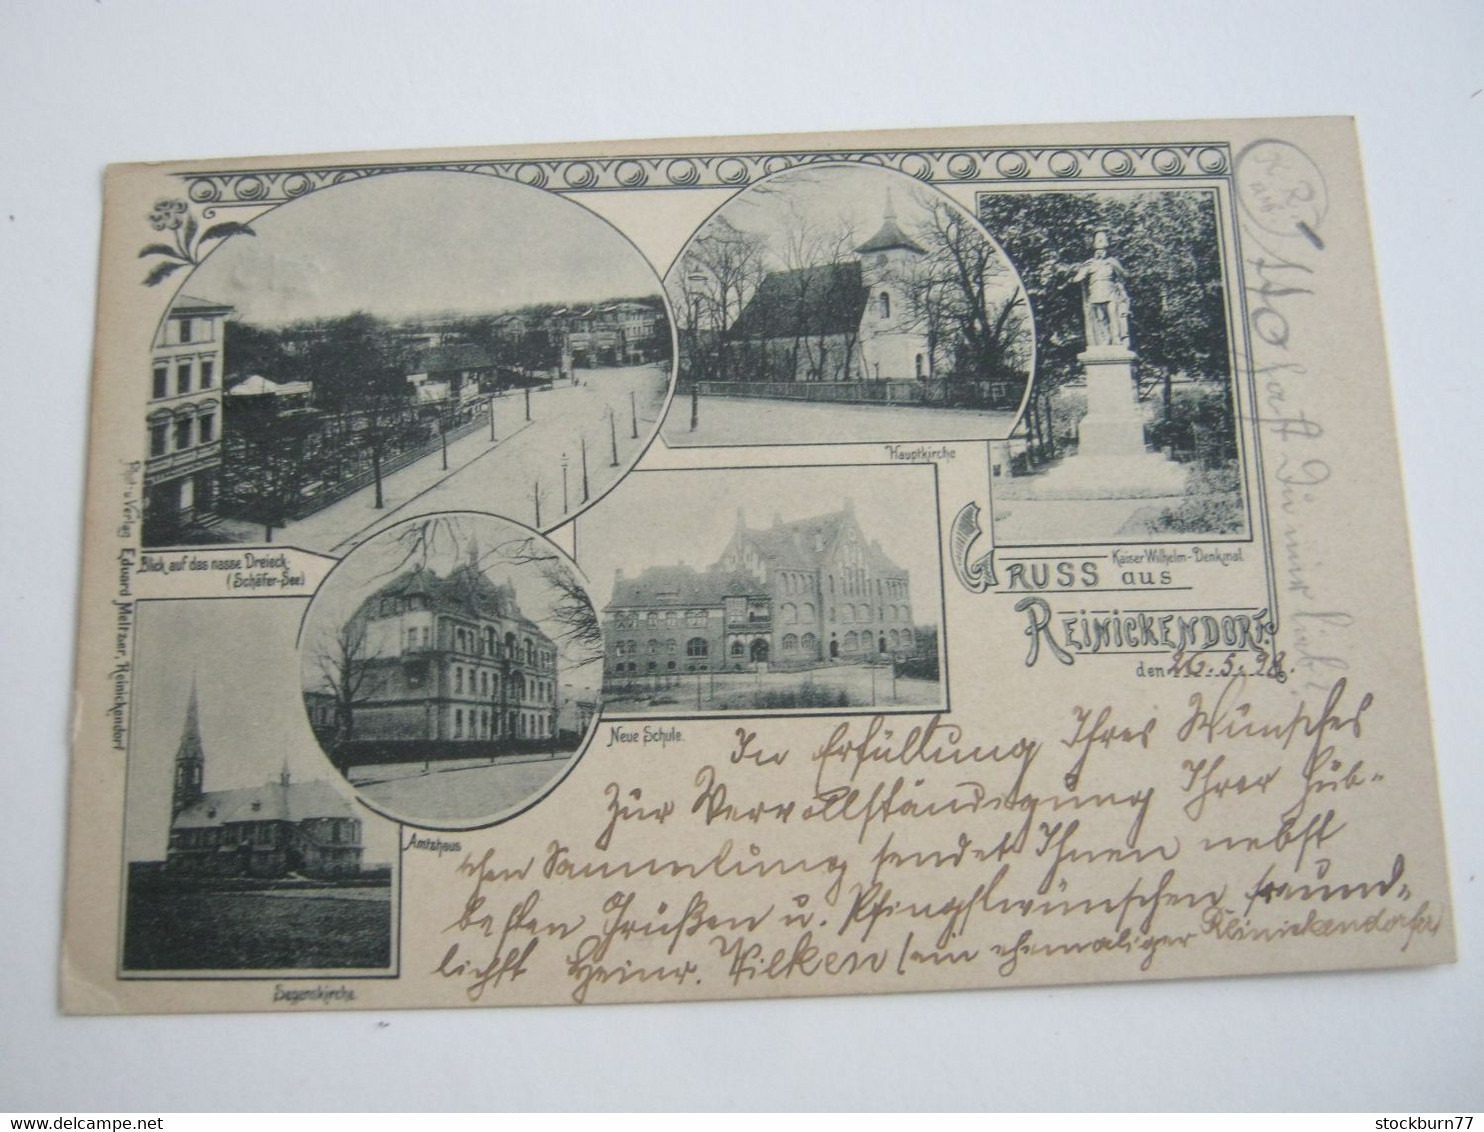 Hauptkirche
Blick auf das nasse Dreieck
(Schäfer-See)
Kaiser Wilhelm-Denkmal
GRUSS aus
REINICKENDORF.
den 26.5.98.
Neue Schule.
Amtshaus
Segenskirche
Phot. u. Verlag Eduard Meltzer, Reinickendorf
In Erfüllung Ihres Wunsches
zur Vervollständigung Ihrer hüb-
schen Sammlung sendet Ihnen nebst
besten Grüßen u. Pfingstwünschen freund-
lichst Heinr. Wilken (ein ehemaliger Reinickendorfer)
delcampe.net
stockburn77